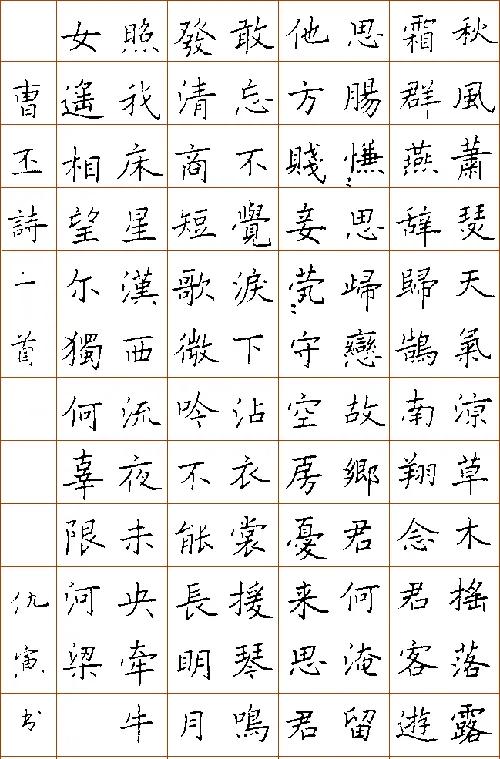 秋風蕭瑟天氣涼草木搖落露
霜群燕辞歸鵠南翔念君客遊
思腸慊〻思歸戀故鄉君何淹留
他方賤妾茕〻守空房憂来思君
敢忘不覺淚下沾衣裳援琴鳴
發清商短歌微吟不能長明月
照我床星漢西流夜未央牽牛
女遙相望尔獨何辜限河梁
曹丕詩二首
仇寅书